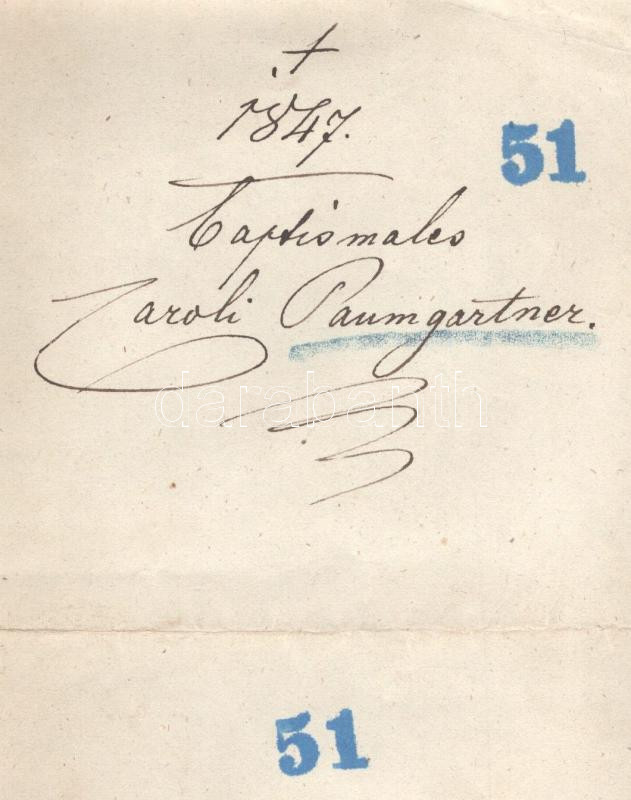 +
1847.
51
Baptismales
Caroli Paumgartner.
darabanth
51